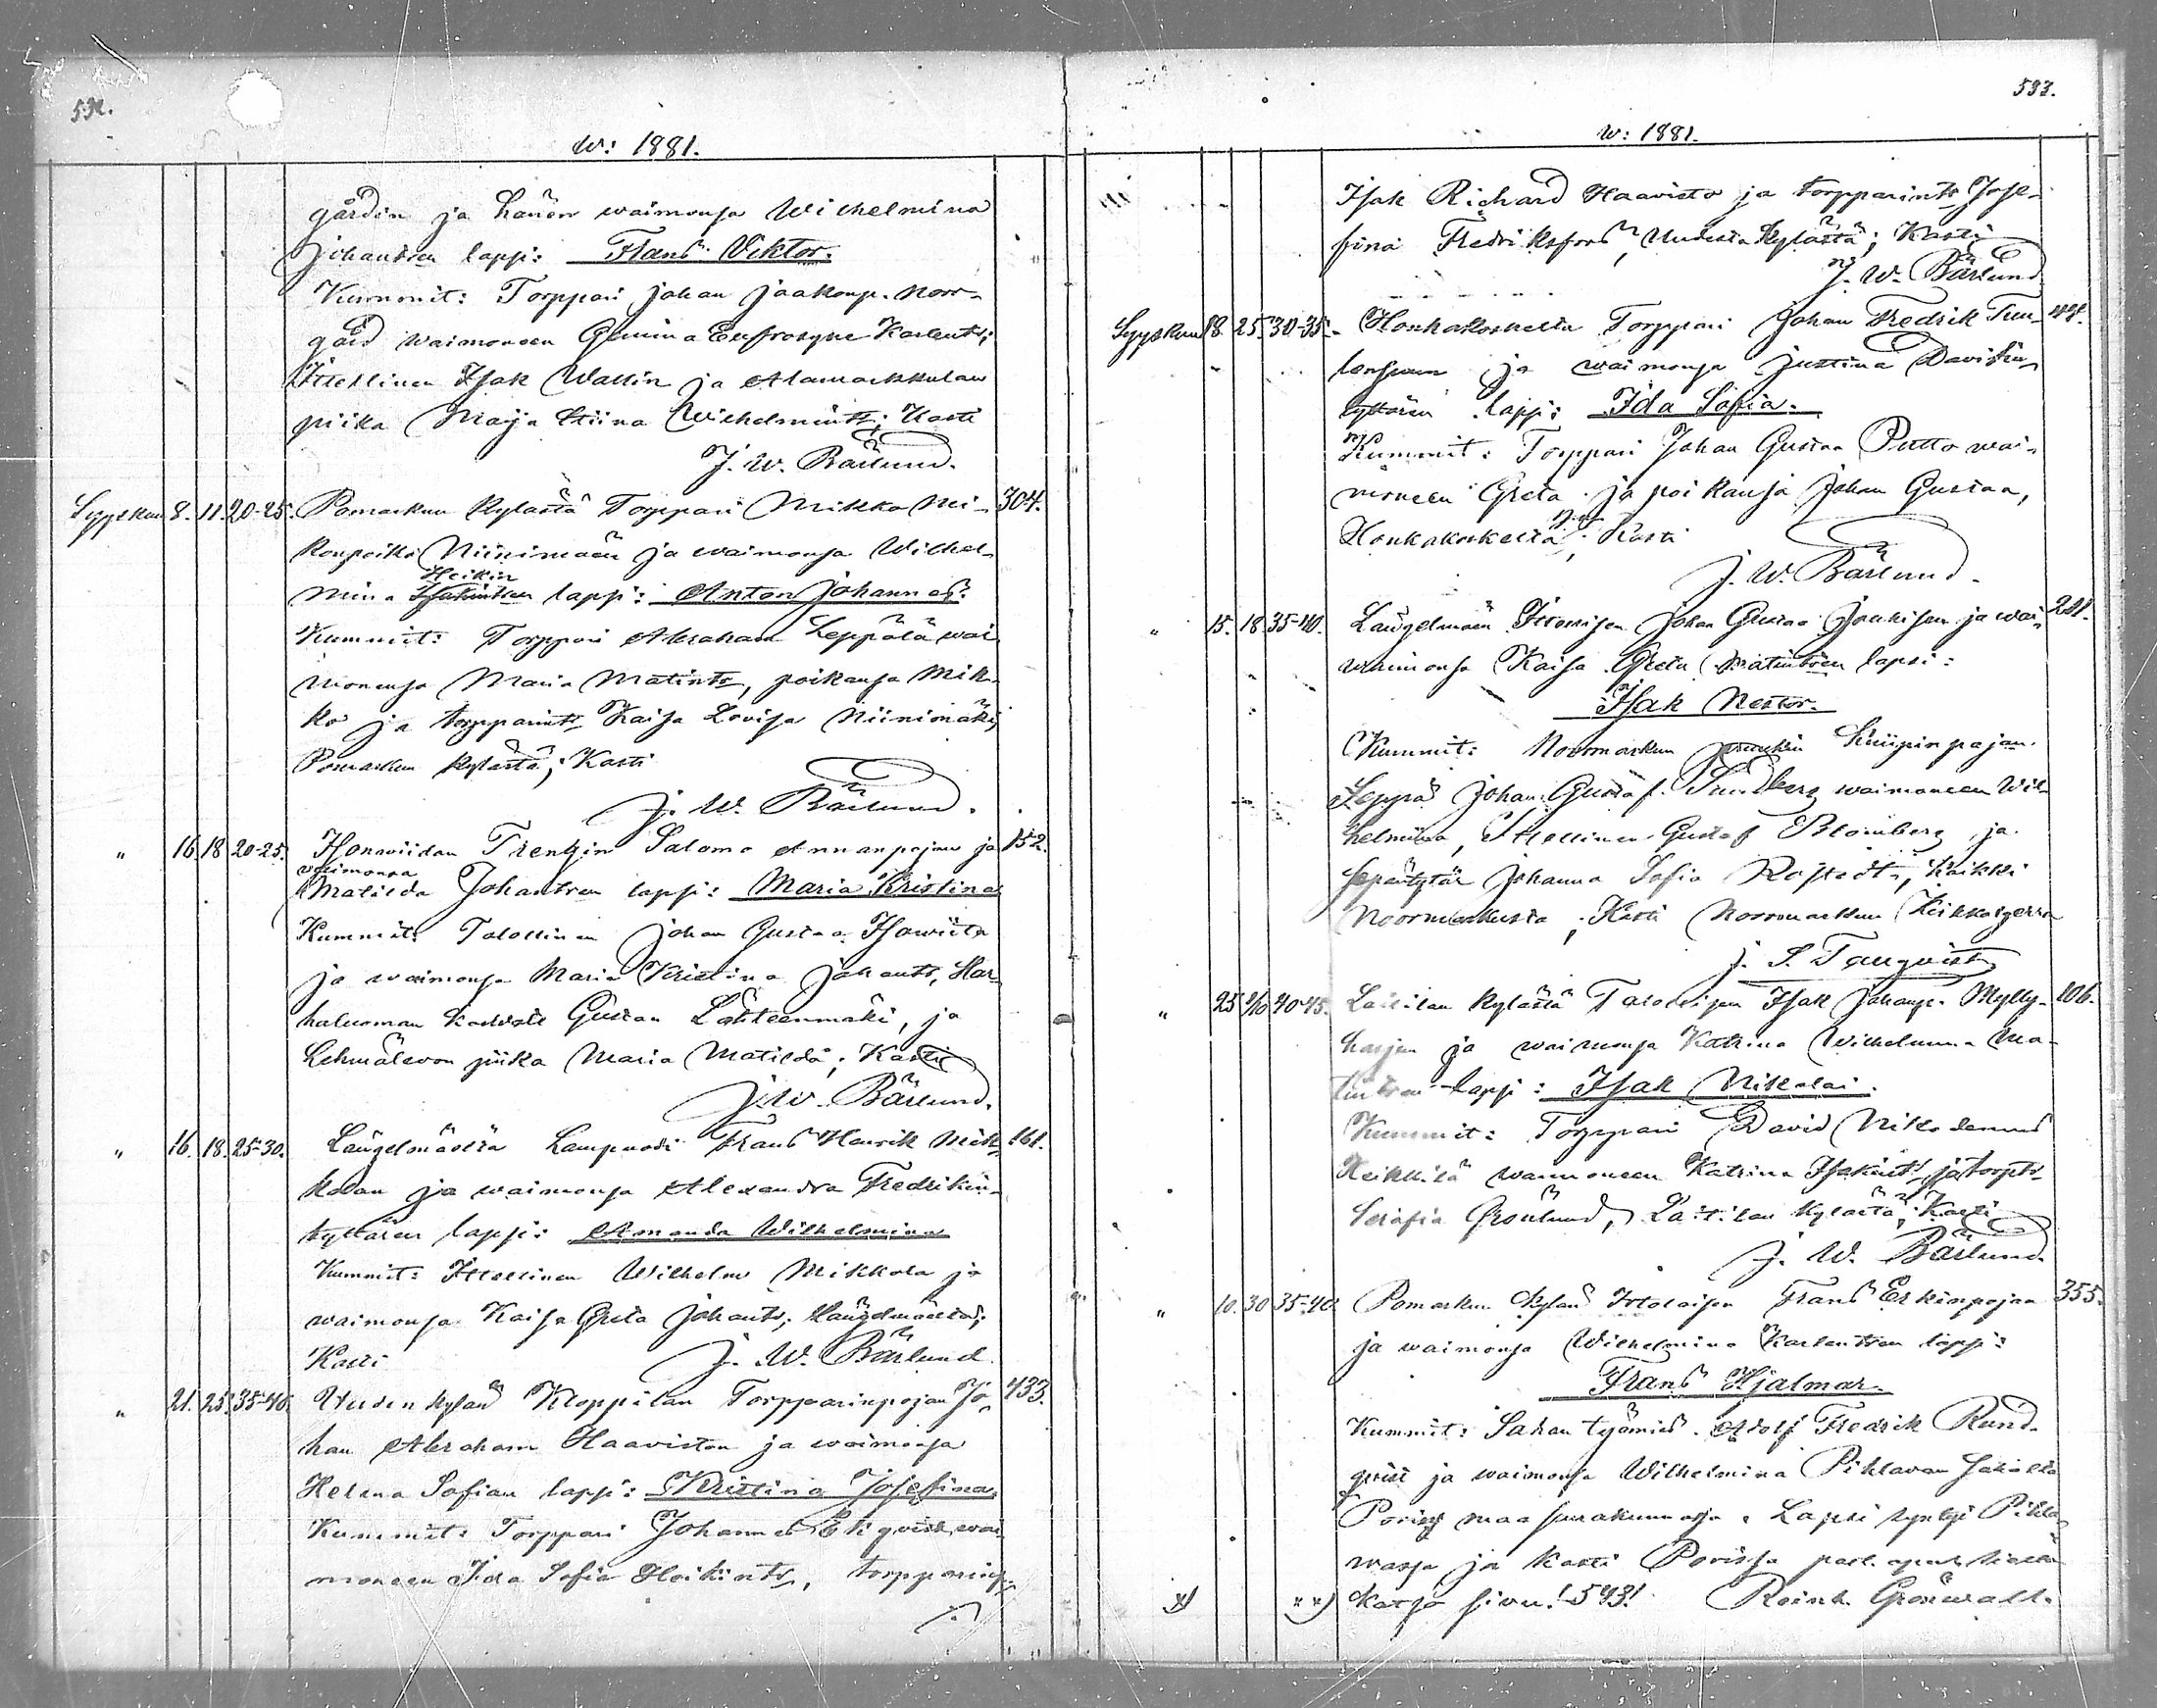 532.
w: 1881.
gårdin ja hänen waimonsa Wilhelmina
Johantren lapsi: Frans Viktor.
Kummit: Torppari Johan Jaakonp. Norr-
gård waimoneen Eufrosyne Karlents;
Itsellinen Isak Wallin ja Alamarkkulan
piika Maija Stiina Wilhelmints; Kasti
J. W. Bärlund.
Syyskuu 8. 11. 20-25. Pomarkun kylästä Torppari Mikko Mi- 304.
konpoika Niinimäen ja waimonsa Wilhel-
Heikin
mina lapsi: Anton Johannes.
Kummit: Torppari Abraham Leppälä wai
monensa Maria Matints, poikansa Mik-
ko ja torpparints Kaisa Lovisa Niinimäki,
Pomarkun kylästä; Kasti
J. W. Bärlund.
" 16. 18. 20-25. Isonwiidan Trengin Salomo Annanpojan ja 152.
waimonsa
Matilda Johantren lapsi: Maria Kristina
Kummit: Talollinen Johan Gustaa Isowiita
ja waimonsa Maria Kristina Johants, Har-
haluoman Gustaa Lähteenmäki, ja
Lehmälevon piika Maria Matilda; Kasti
J. W. Bärlund.
" 16. 18. 25-30. Längelmäeltä Lampuodi Frans Henrik Mik- 161.
kolan ja waimonsa Alexandra Fredrikin-
tyttären lapsi: Amanda Wilhelmina
Kummit: Itsellinen Wilhelm Mikkola ja
waimonsa Kaisa Greta Johants, Längelmäeltä;
Kasti J. W. Bärlund.
" 21. 25. 35-40. Uuden kylän Kloppilan Torpparinpojan Jo- 433.
han Abraham Haaviston ja waimonsa
Helena Sofian lapsi: Kristina Josefina
Kummit: Torppari Johannes Ekqvist, wai
moneen Ida Sofia Heikints, torpparinp.
533.
w: 1881.
Isak Richard Haavisto ja torpparints Jose-
fina Fredriksfors, Uudesta kylästä; Kasti
J. W. Bärlund
Syyskuu 18. 25. 30-35. Honkakoskelta Torppari Johan Fredrik Tuu-
longman ja waimonsa Justina Davidin
tyttären lapsi: Ida Sofia.
Kummit: Torppari Johan Gustaa Putto wai-
moneen Greta ja poikansa Johan Gustaa,
Honkakoskelta; Kasti
J. W. Bärlund.
" 15. 18. 35-40. Längelmäen Itsellisen Johan Gustaa ja wai- 281.
waimonsa Kaisa Greta Matintren lapsi:
Isak Nestor.
Kummit: Normarkun Kniipinpajan
Seppä Johan Gustaf Sundberg waimoneen Wil-
helmina, Itsellinen Gustaf Blomberg, ja
sepäntytär Johanna Sofia, kaikki
Noormarkusta; Kasti Norrmarkun
J. S. Tanqvist
" 25 2/10 40-45. Laitilan kylästä Talollisen Isak Johanp. Mylly- 106.
harjun ja waimonsa Katrina Wilhelmina Ma-
tintren lapsi: Isak Nikolai.
Kummit: Torppari David Nikodemus
Heikkilä waimoneen Katrina Isakints ja torpts
Serafia Grönlund, Laitilan kylästä; Kasti
J. W. Bärlund.
" 10. 30 35-40. Pomarkun kylän Itsellisen Frans Erkinpojan 355.
ja waimonsa Wilhelmina Karlentren lapsi:
Frans Hjalmar.
Kummit: Sahan työmies Adolf Fredrik Rund-
qvist ja waimonsa Wilhelmina Pihlavan sahalta
Porin maaseurakunnassa. Lapsi syntyi Pihla-
wassa ja kasti Porissa past. apulainen
x) xx) Katso sivu 543! Reinh. Grönvall.